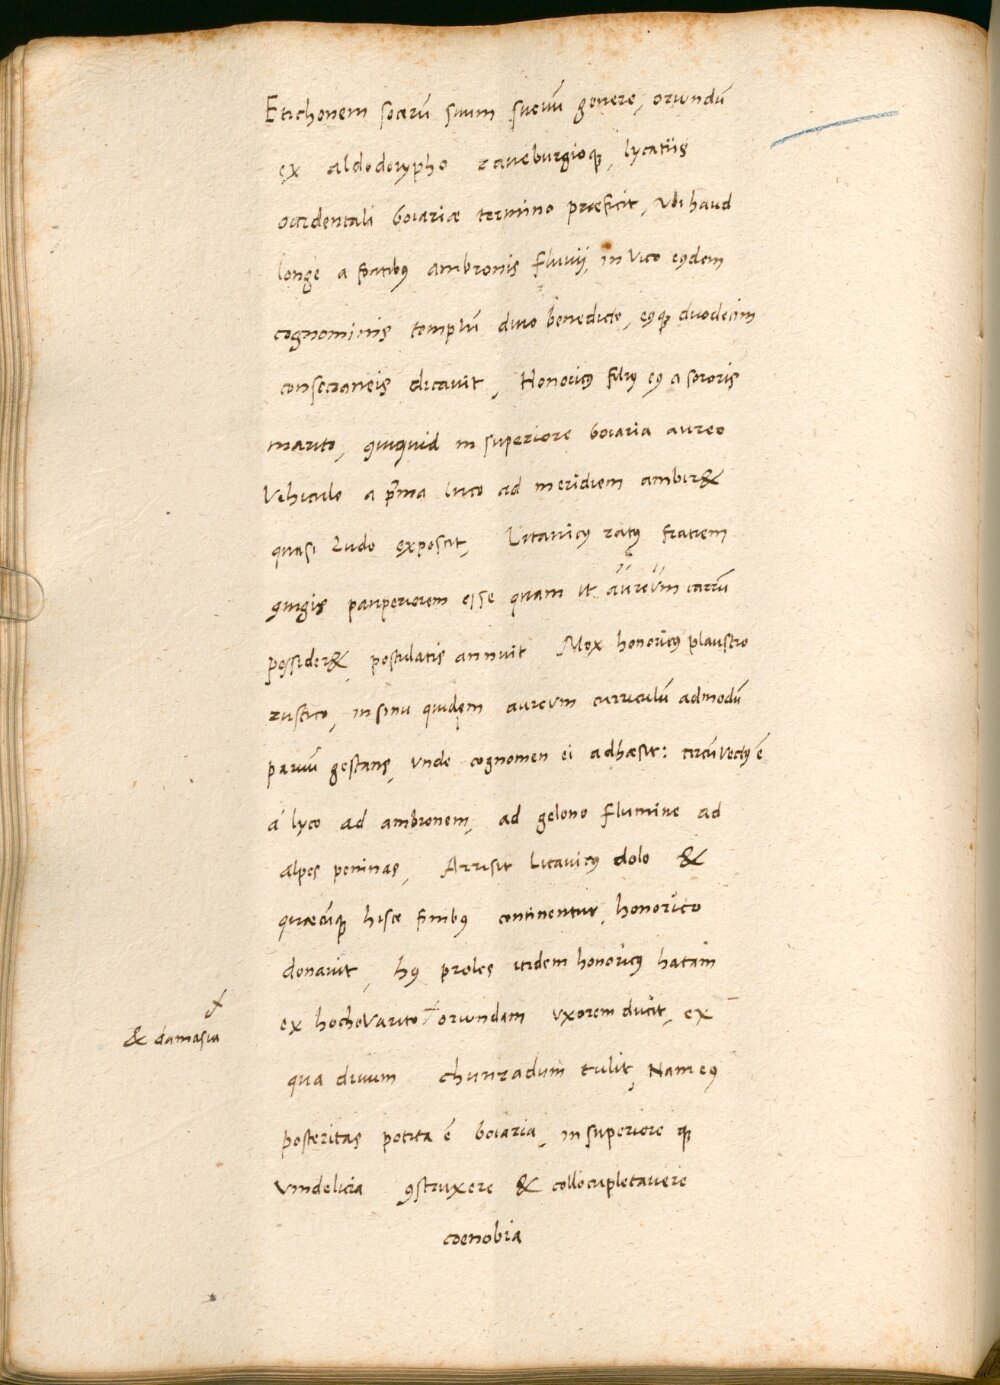 Etichonem socerū suum suevū genere, oriundū
ex aldodorypho raveburgioqꝫ, lycatiis
occidentali boiariæ termino præficit, ubi haud
longe a fōntibꝰ ambronis fluvij, in vico eꝰdem
cognominis templū divo benedicto, eꝰqꝫ duodecim
consecraneis dicavit, Honoricꝰ filiꝰ eꝰ a sororis
marito, quiquid in superiore boiaria aureo
vehiculo a p̄ma luce ad meridiem ambir&
quasi ludo exposcit, Litavicꝰ ratꝰ fratrem
ꝯiugis pauperiorem esse quam ut aureum currū
possider&, postulatis annuit Mox honoricꝰ plaustro
rustico, in sinu quidem aureum curriculū admodū
parvū gestans, unde cognomen ei adhæsit: circūvectꝰ ē
á lyco ad ambronem, ad gelono flumine ad
alpes peninas, Arrisit Litavicꝰ dolo &
quæcūqꝫ hisce finibꝰ continentur, honorico
donavit, hꝰ proles itidem honoricꝰ hatam
ex hochovarito oriundam uxorem ducit, ex
& damasia
qua divum chunradum tulit, Nam eꝰ
posteritas potita ē boiaria, in superiore qꝫ
vindelicia ꝯstruxere & collocupletavere
coenobia